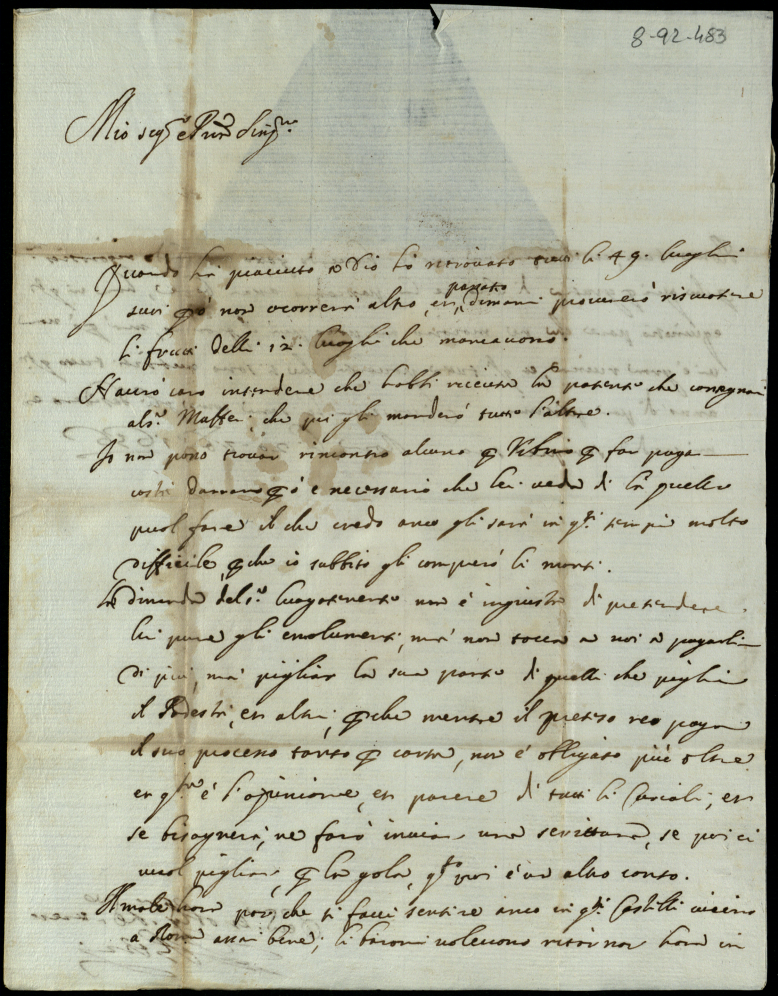 8-92-483
Mio sig.re e P.ron Sing.mo
Quando ha piaciuto a Dio hò ritrovato tutti li 49. luoghi
suoi però non ocorrerà altro, et passato dimani procurerò riscotere
li frutti delli 12. luoghi che mancavono.
Haverò caro intendere che habbi ricevuto la patente che consegnai
al s.r Maffei che poi gli manderò tutte l'altre.
Io non posso trovar rincontro alcuno per Urbino per far pagar
costì danaro però è necessario che lei veda di là quello
puol fare il che credo anco gli sarà in q.ti tempi molto
difficile, perche io subbito gli comprerò li monti.
La dimanda del s.r luogotenente non è ingiusta di pretendere
lui pure gli emolumenti, mà non tocca a noi a pagarli
di più, mà pigliar la sua parte di quelli che piglia
il Podestà, et altri, perche mentre il preteso reo paga
il suo processo tanto per carta, non è obligato più oltre
et q.ta è l'opinione, et parere di tutti li Curiali, et
se bisognerà, ne farò inviar una scrittura, se poi ci
vuol pigliar per la gola, q.to poi è un altro conto.
Il male hora par che si facci sentire anco in q.ti Castelli vicino
a Roma assai bene; li baroni volevono ritornar hora in